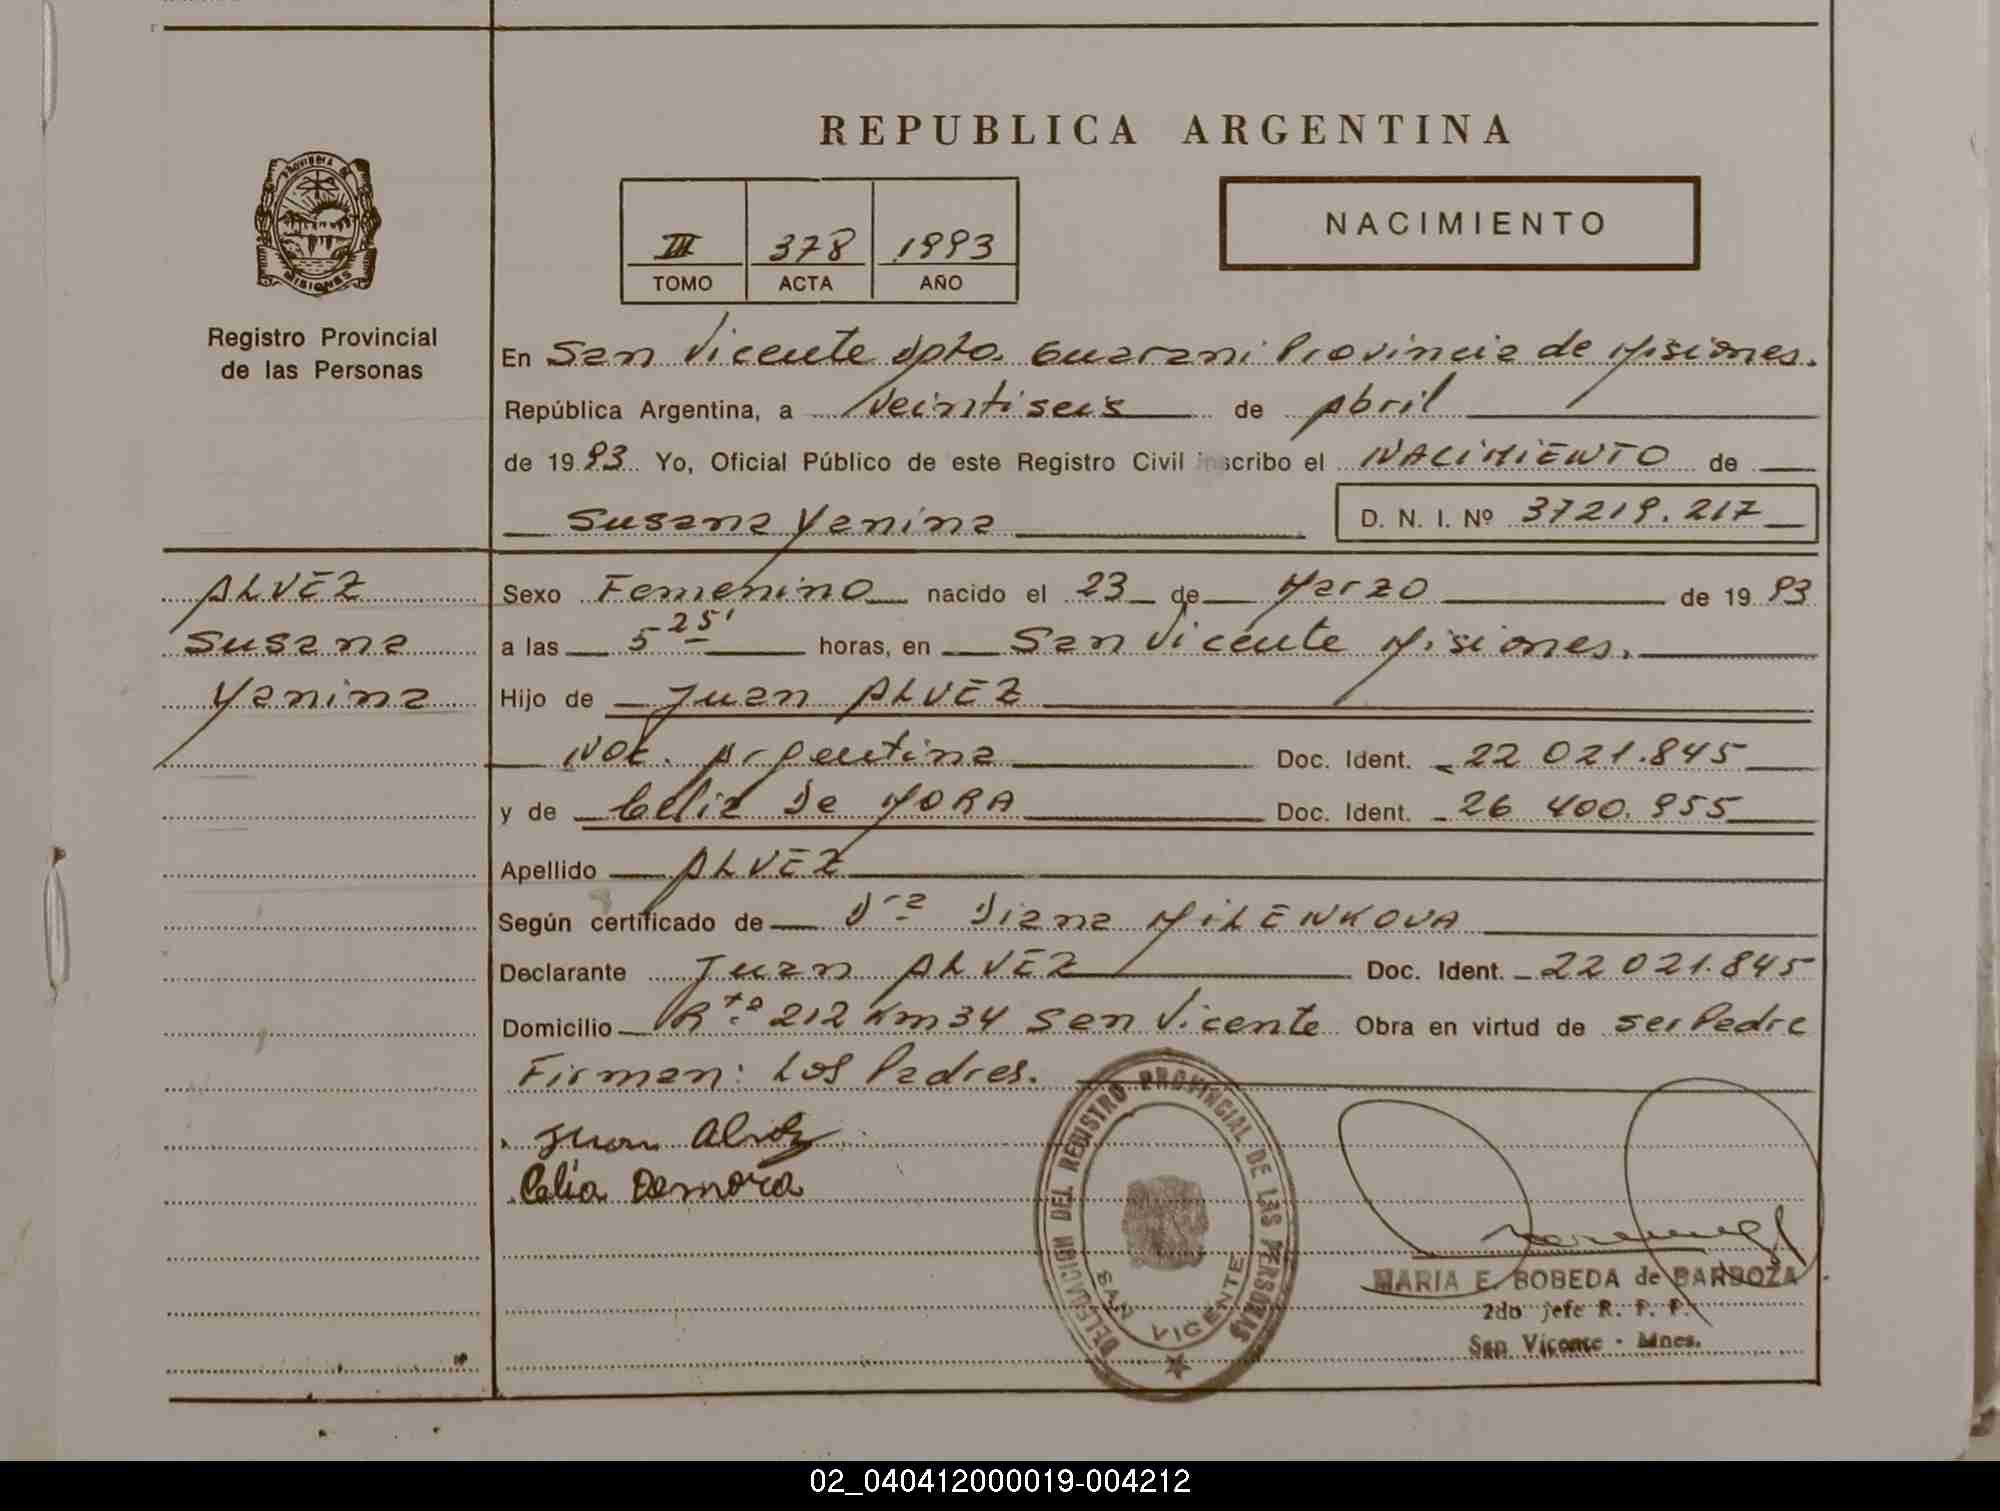 REPUBLICA ARGENTINA
PROVINCIA DE
MISIONES
Registro Provincial
de las Personas
III 378 1993
TOMO ACTA AÑO
NACIMIENTO
En San Vicente Dpto. Guarani Provincia de Misiones.
República Argentina, a Veintiseis de Abril
de 1993 Yo, Oficial Público de este Registro Civil inscribo el NACIMIENTO de
Susana Yanina D. N. I. Nº 37219.217
ALVEZ
Susana
Yanina
Sexo Femenino nacido el 23 de Marzo de 1993
a las 5 25' horas, en San Vicente Misiones.
Hijo de Juan ALVEZ
Nac. Argentina Doc. Ident. 22 021.845
y de Celia De MORA Doc. Ident. 26 400.955
Apellido ALVEZ
Según certificado de Dra Diana MILENKOVA
Declarante Juan ALVEZ Doc. Ident. 22 021.845
Domicilio Rta 212 Km 34 San Vicente Obra en virtud de ser Padre
Firman: Los Padres.
Juan Alvez
Celia Demora
DELEGACION DEL REGISTRO PROVINCIAL DE LAS PERSONAS
SAN VICENTE
MARIA E. BOBEDA de BARBOZA
2do jefe R. P. P.
San Vicente - Mnes.
02_040412000019-004212